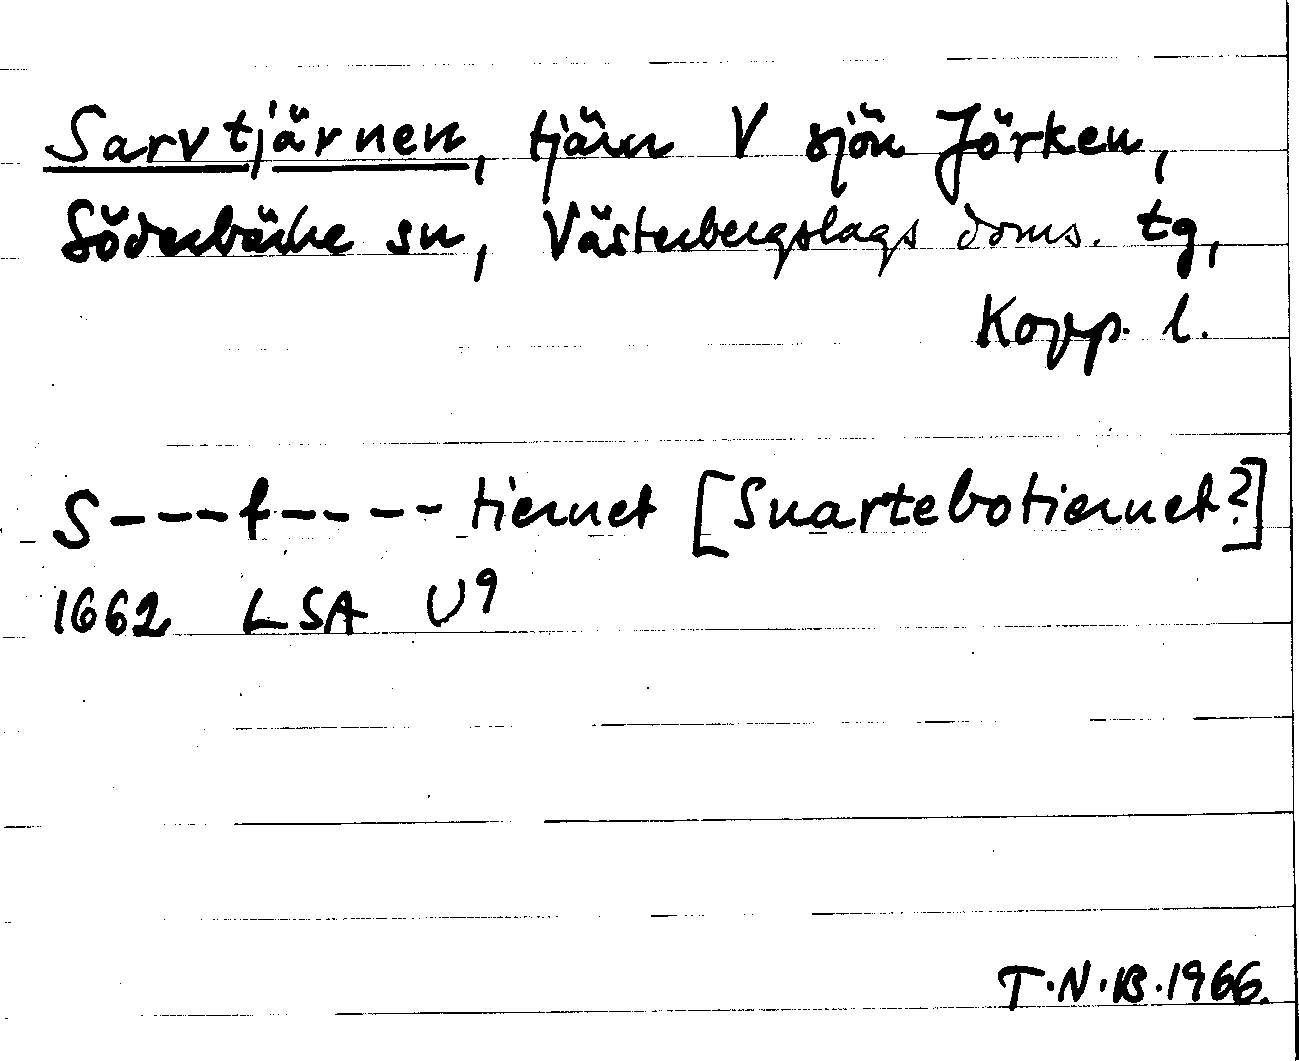 Sarvtjärnen, tjärn V sjön Jörken,
Söderbärke sn, Västerbergslags doms. tg,
Kopp. l.
S---f----- tiernet [Suartebotiernet?]
1662 LSA U9
T.N.B.1966.